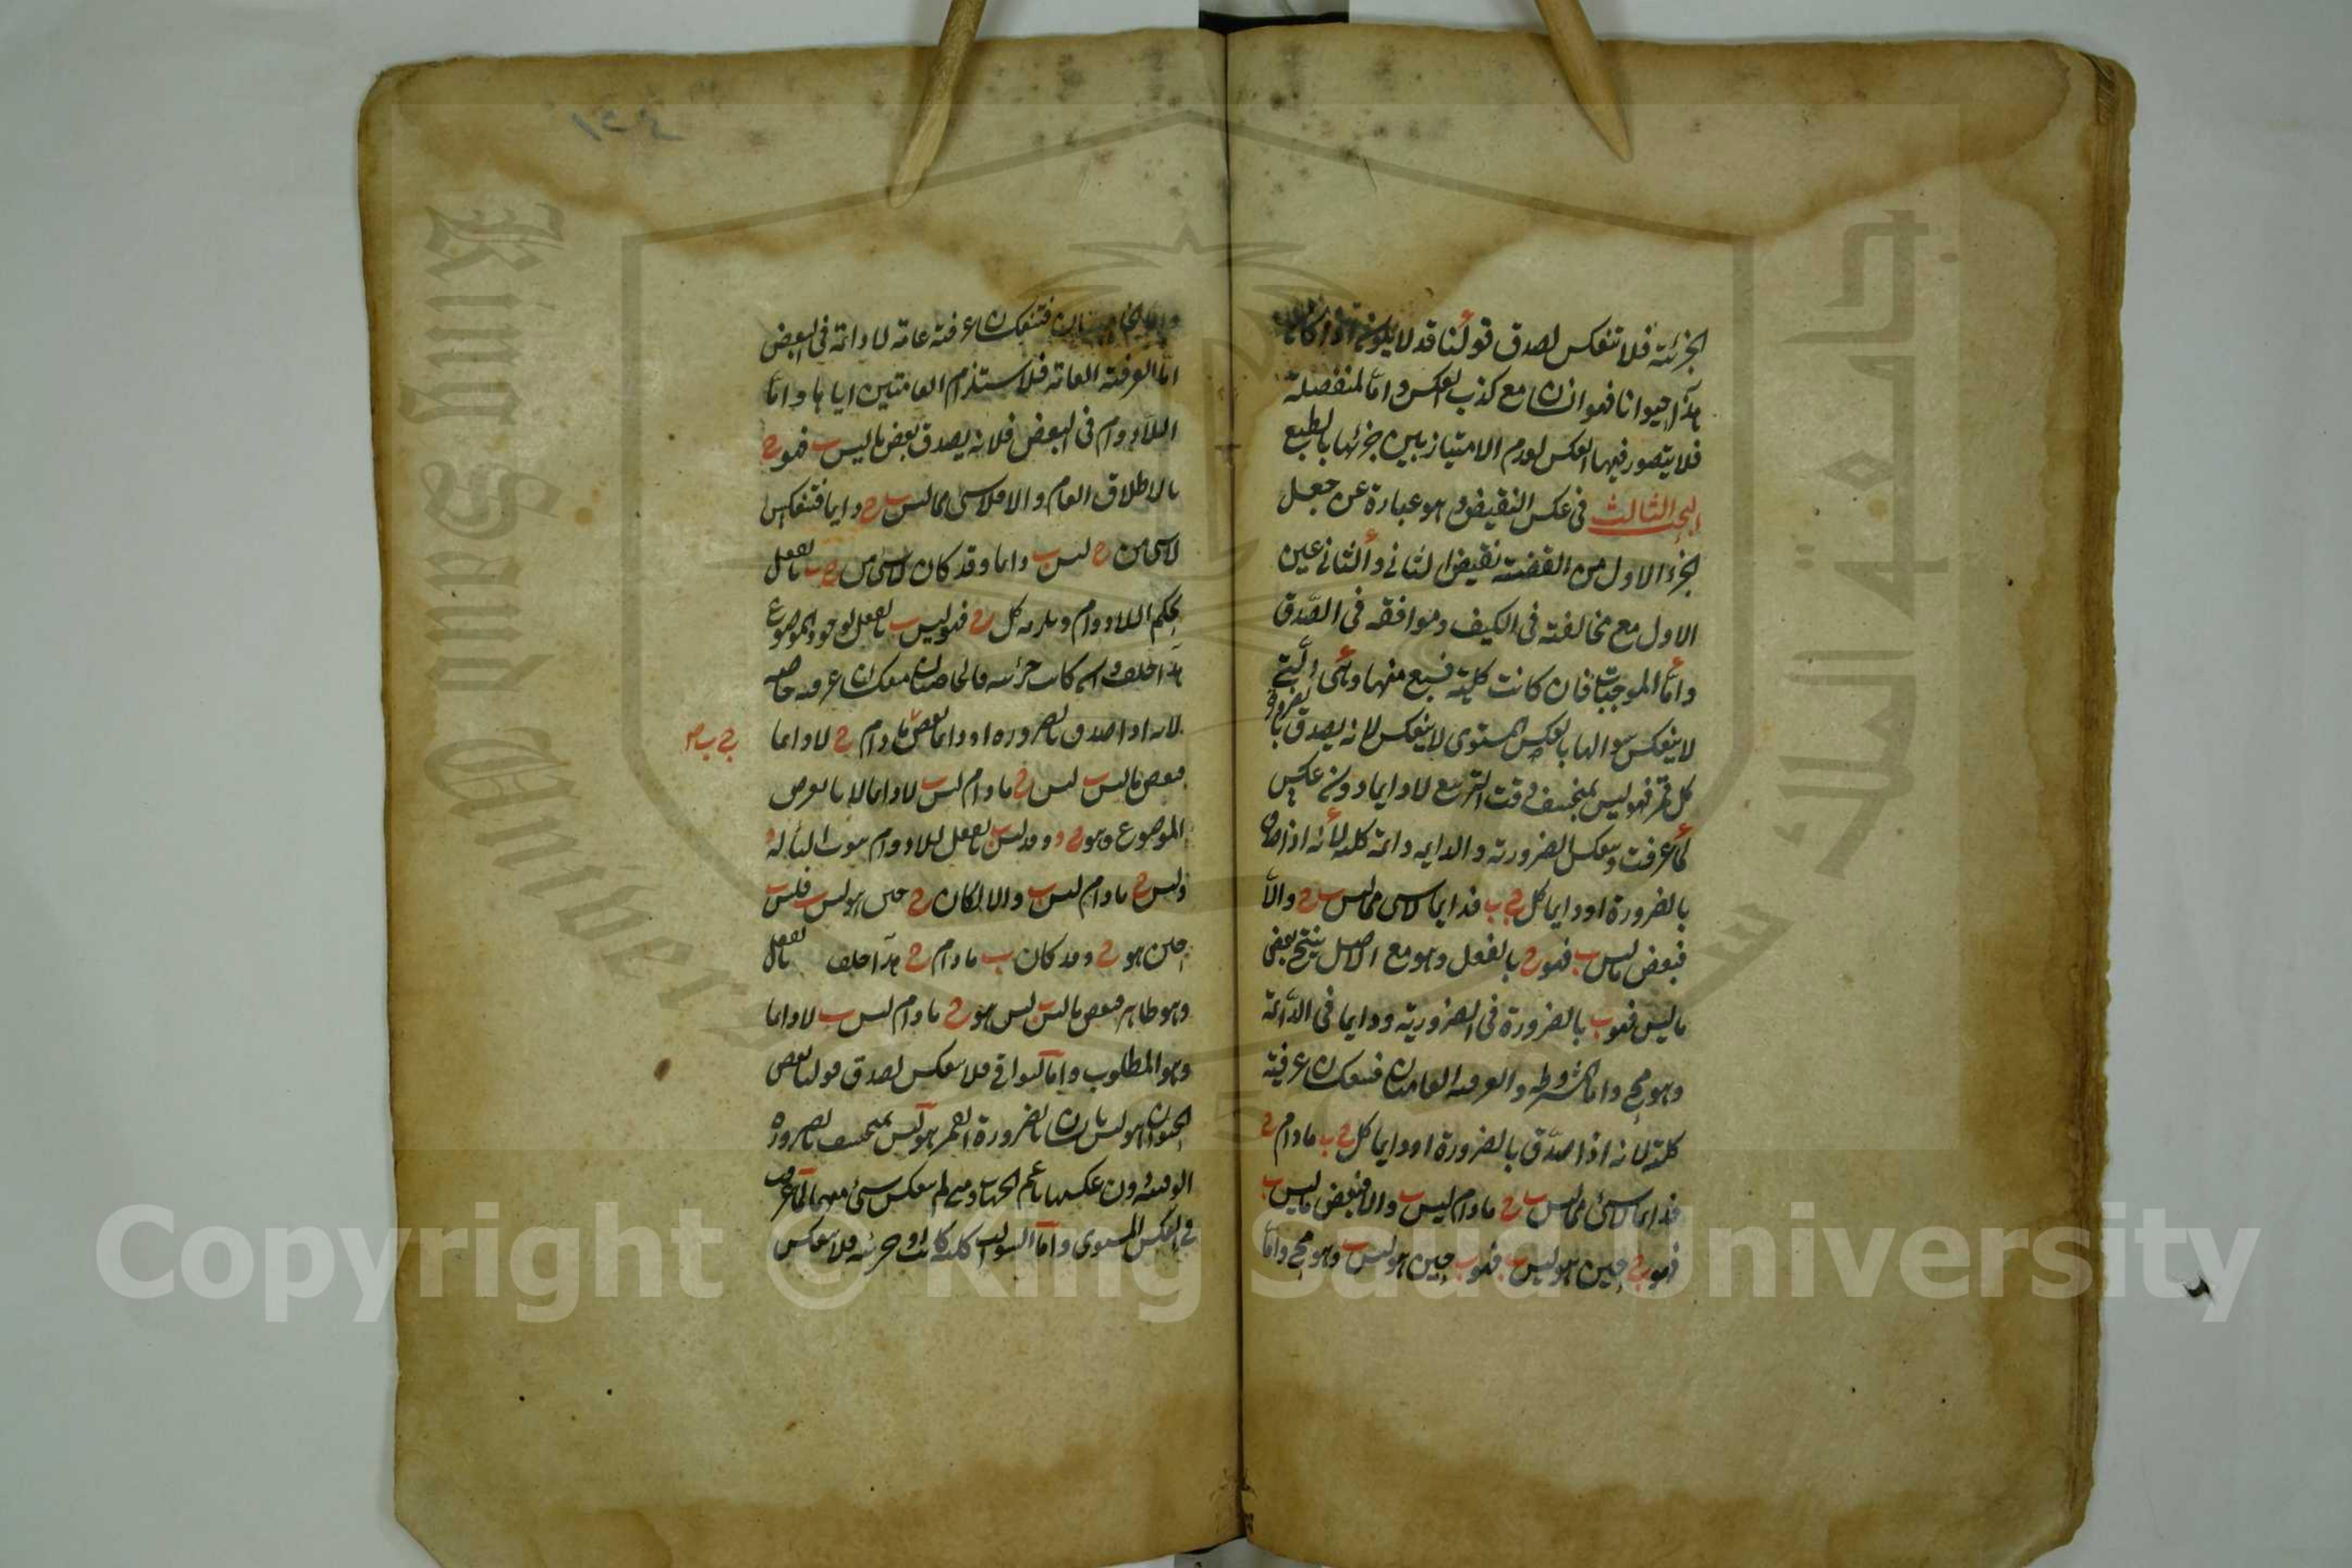 الجزئية فلا تنعكس لصدق قولنا قد لا يكون اذا كان
هذا حيوانا فهو انسان مع كذب العكس واما المنفصلة
فلا يتصور فيها العكس لعدم الامتياز بين جزئيها بالطبع
البحث الثالث فى عكس النقيض وهو عبارة عن جعل
الجزء الاول من القضية نقيض الثانى والثانى عين
الاول مع مخالفته فى الكيف وموافقه فى الصدق
واما الموجبات فان كانت كلية فسبع منها وهى التى
لا ينعكس سوالبها بالعكس المستوى لا ينعكس لانه يصدق بالضرورة
كل قمر فهو ليس بمنخسف وقت التربيع لا دايما دون عكسه
لما عرفت وينعكس الضرورية والدايمه دائمة كلية لانه اذا صدق
بالضرورة او دايما كل ج ب فدايما لا شى مما ليس ب ج والا
فبعض ما ليس ب فهو ج بالفعل وهو مع الاصل ينتج بعض
ما ليس فهو ب بالضرورة فى الضرورية ودايما فى الدائمة
وهو مح واما المشروطه والعرفيه العامتان فتنعكسان عرفية
كلية لانه اذا صدق بالضرورة او دايما كل ج ب مادام ج
فدايما لا شئ مما ليس ب ج مادام ليس ب والا فبعض ما ليس ب
فهو ج حين هو ليس ب فهو ب حين هو ليس ب وهو مح واما
١٢٤
فتنعكسان عرفية عامة لا دائمة فى البعض
اما العرفية العامة فلاستلزام العامتين اياها واما
اللادوام فى البعض فلانه يصدق بعض ما ليس ب فهو ج
بالاطلاق العام والا فلا شى مما ليس ب ج دايما فتنعكس
لا شى من ج ليس ب دايما وقد كان لا شى من ج ب بالفعل
بحكم اللادوام ويلزمه كل ج فهو ليس ب بالفعل لوجود الموضوع
هذا خلف وان كانت جزئيه فالخاصتان تنعكسان عرفيه خاصه
لانه اذا صدق بالضروره او دايما بعض مادام ج لا دايما
ج ب ص
فبعض ما ليس ب ليس ج مادام ليس ب لا دايما لانا نفرض
الموضوع وهو ج د و د ليس ب بالفعل للادوام ثبوت الباء له
وليس ج مادام ليس ب والا لكان ج حين هو ليس ب فليس ب
حين هو ج وقد كان ب مادام ج هذا خلف بالفعل
وهو ظاهر فبعض ما ليس ب ليس هو ج مادام ليس ب لا دايما
وهو المطلوب واما البواقى فلا تنعكس لصدق قولنا بعض
الحيوان هو ليس بانسان بالضرورة القمر هو ليس بمنخسف بالضروره
الوقتيه دون عكسها باعم الجهات لم تنعكس شئ منهما لما عرفت
فى العكس المستوى واما السوالب كليه كانت او جزئيه فلا تنعكس
Copyright © King Saud University
King Saud University
جامعة الملك سعود